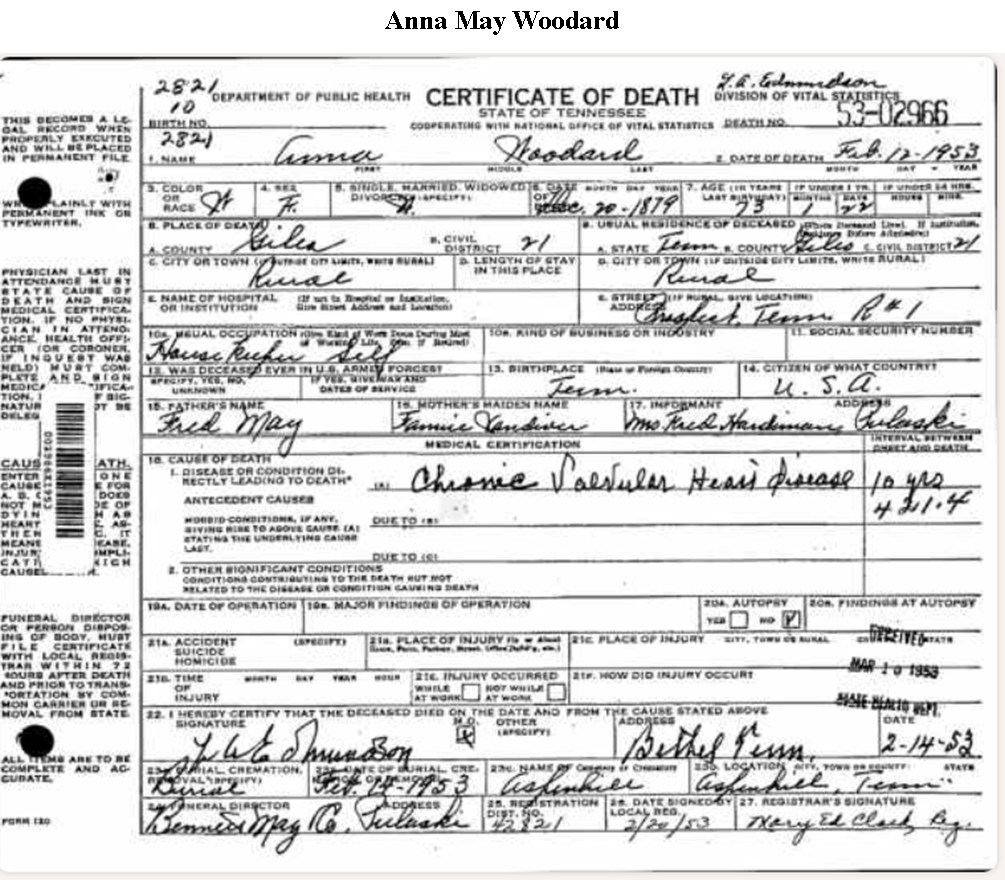 Anna May Woodard
2821
10
DEPARTMENT OF PUBLIC HEALTH
CERTIFICATE OF DEATH
STATE OF TENNESSEE
COOPERATING WITH NATIONAL OFFICE OF VITAL STATISTICS
DIVISION OF VITAL STATISTICS
BIRTH NO.
DEATH NO. 53-02966
2821
1. NAME Anna Woodard
FIRST MIDDLE LAST
2. DATE OF DEATH Feb. 12-1953
MONTH DAY YEAR
3. COLOR OR RACE W
4. SEX F.
5. SINGLE, MARRIED, WIDOWED, DIVORCED (SPECIFY)
6. DATE OF MONTH DAY YEAR Dec. 20-1879
7. AGE (IN YEARS LAST BIRTHDAY) 73
IF UNDER 1 YR. MONTHS 1 DAYS 22
IF UNDER 24 HRS. HOURS MINS.
8. PLACE OF DEATH
A. COUNTY Giles
B. CIVIL DISTRICT 21
9. USUAL RESIDENCE OF DECEASED (Where Deceased Lived. If Institution, Residence Before Admission)
A. STATE Tenn B. COUNTY Giles C. CIVIL DISTRICT 21
C. CITY OR TOWN (IF OUTSIDE CITY LIMITS, WRITE RURAL) Rural
D. LENGTH OF STAY IN THIS PLACE
D. CITY OR TOWN (IF OUTSIDE CITY LIMITS, WRITE RURAL) Rural
E. NAME OF HOSPITAL OR INSTITUTION (If not in Hospital or Institution, Give Street Address and Location)
E. STREET ADDRESS (IF RURAL, GIVE LOCATION) Prospect, Tenn R #1
10A. USUAL OCCUPATION (Give Kind of Work Done During Most of Working Life, Even If Retired) House Keeper Self
10B. KIND OF BUSINESS OR INDUSTRY
11. SOCIAL SECURITY NUMBER
12. WAS DECEASED EVER IN U.S. ARMED FORCES?
SPECIFY, YES, NO, UNKNOWN
IF YES, GIVE WAR AND DATES OF SERVICE
13. BIRTHPLACE (State or Foreign Country) Tenn.
14. CITIZEN OF WHAT COUNTRY? U.S.A.
15. FATHER'S NAME Fred May
16. MOTHER'S MAIDEN NAME Fannie Vandiver
17. INFORMANT ADDRESS Mrs Fred Hardiman, Pulaski
MEDICAL CERTIFICATION
INTERVAL BETWEEN ONSET AND DEATH
18. CAUSE OF DEATH
1. DISEASE OR CONDITION DIRECTLY LEADING TO DEATH* (A) Chronic Valvular Heart Disease 10 yrs
421.4
ANTECEDENT CAUSES
MORBID CONDITIONS, IF ANY, GIVING RISE TO ABOVE CAUSE (A) STATING THE UNDERLYING CAUSE LAST.
DUE TO (B)
DUE TO (C)
2. OTHER SIGNIFICANT CONDITIONS
CONDITIONS CONTRIBUTING TO THE DEATH BUT NOT
RELATED TO THE DISEASE OR CONDITION CAUSING DEATH
19A. DATE OF OPERATION
19B. MAJOR FINDINGS OF OPERATION
20A. AUTOPSY YES NO
20B. FINDINGS AT AUTOPSY
21A. ACCIDENT SUICIDE HOMICIDE (SPECIFY)
21B. PLACE OF INJURY
21C. PLACE OF INJURY CITY, TOWN OR RURAL STATE
RECEIVED
MAR 10 1953
STATE HEALTH DEPT.
21D. TIME OF INJURY MONTH DAY YEAR HOUR
21E. INJURY OCCURRED WHILE AT WORK NOT WHILE AT WORK
21F. HOW DID INJURY OCCUR?
22. I HEREBY CERTIFY THAT THE DECEASED DIED ON THE DATE AND FROM THE CAUSE STATED ABOVE
SIGNATURE M.D. OTHER (SPECIFY) ADDRESS Bethel Tenn. DATE 2-14-53
23A. BURIAL, CREMATION, REMOVAL (SPECIFY) Burial
Feb. 14-1953
23C. NAME OF Cemetery or Crematory Aspenhill
23D. LOCATION CITY, TOWN OR COUNTY STATE Aspenhill, Tenn
24. FUNERAL DIRECTOR ADDRESS Bennett May Co. Pulaski
25. REGISTRATION DIST. NO. 42821
26. DATE SIGNED BY LOCAL REG. 2/20/53
27. REGISTRAR'S SIGNATURE Mary Ed Clark, Reg.
THIS BECOMES A LEGAL RECORD WHEN PROPERLY EXECUTED AND WILL BE PLACED IN PERMANENT FILE.
PLAINLY WITH PERMANENT INK OR TYPEWRITER.
PHYSICIAN LAST IN ATTENDANCE MUST STATE CAUSE OF DEATH AND SIGN MEDICAL CERTIFICATION.
FUNERAL DIRECTOR OR PERSON DISPOSING OF BODY, MUST FILE CERTIFICATE WITH LOCAL REGISTRAR WITHIN 72 HOURS AFTER DEATH AND PRIOR TO TRANSPORTATION BY COMMON CARRIER OR REMOVAL FROM STATE.
ALL ITEMS ARE TO BE COMPLETE AND ACCURATE.
FORM 130